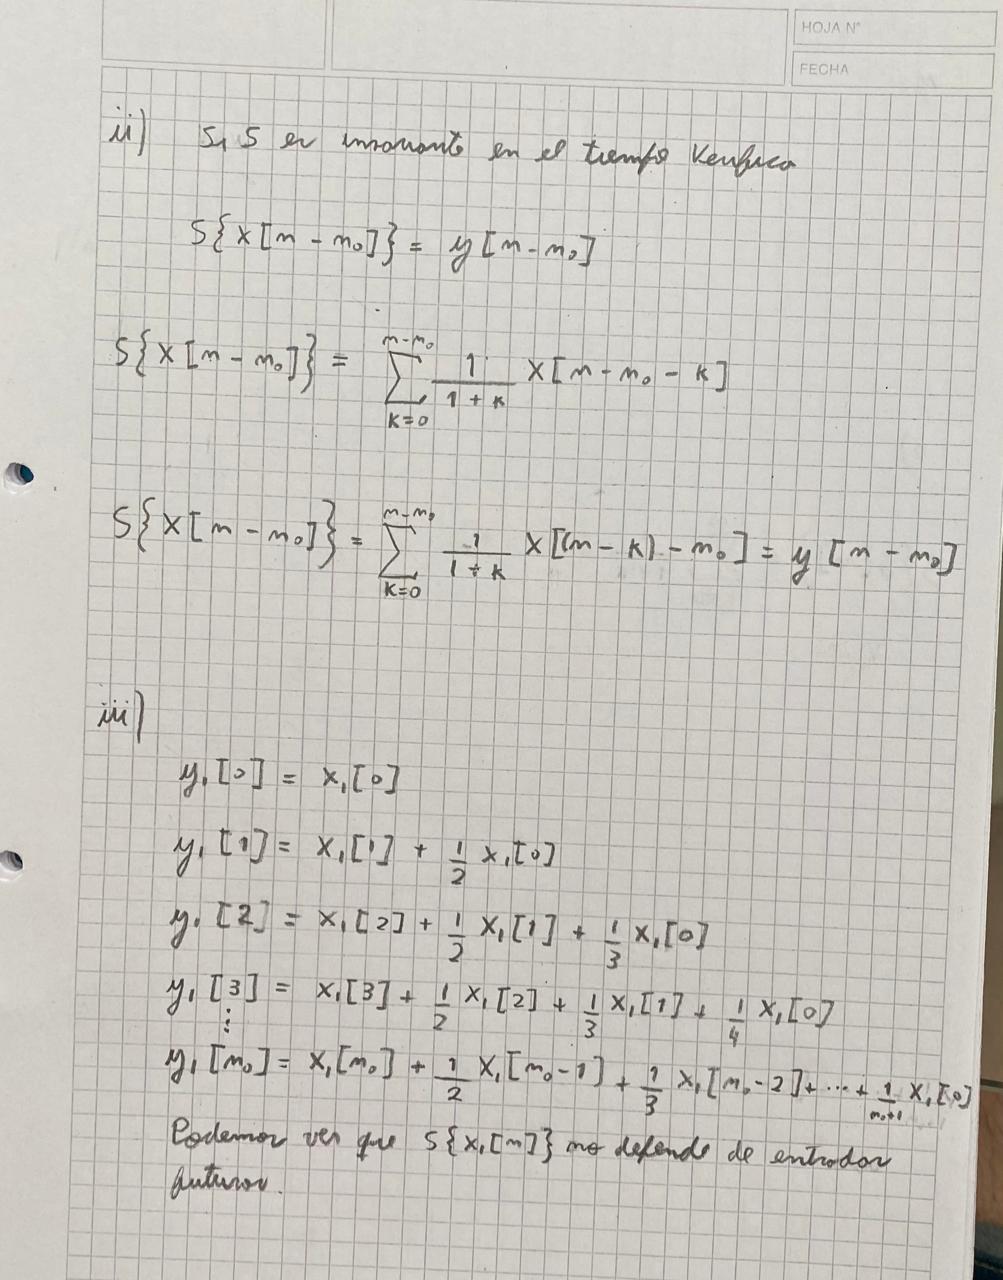 HOJA N°
FECHA
ii) Si S es invariante en el tiempo Verifica
S{x[n - n₀]} = y[n - n₀]
S{x[n - n₀]} = ∑_{k=0}^{n-n₀} 1/(1 + k) x[n - n₀ - k]
S{x[n - n₀]} = ∑_{k=0}^{n-n₀} 1/(1 + k) x[(n - k) - n₀] = y[n - n₀]
iii)
y₁[0] = x₁[0]
y₁[1] = x₁[1] + 1/2 x₁[0]
y₁[2] = x₁[2] + 1/2 x₁[1] + 1/3 x₁[0]
y₁[3] = x₁[3] + 1/2 x₁[2] + 1/3 x₁[1] + 1/4 x₁[0]
⋮
y₁[n₀] = x₁[n₀] + 1/2 x₁[n₀-1] + 1/3 x₁[n₀-2] + ... + 1/(n₀+1) x₁[0]
Podemos ver que S{x₁[n]} no depende de entradas
futuras.